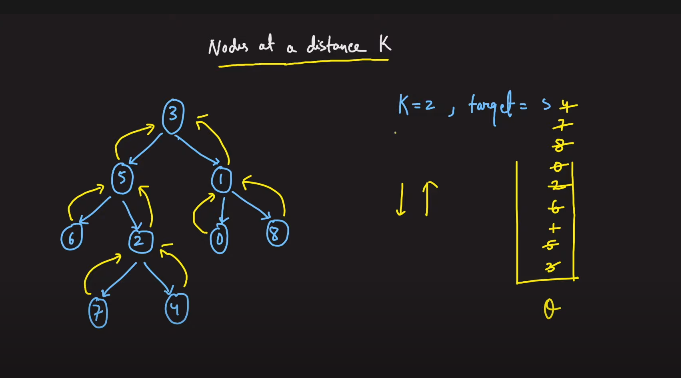 Nodes at a distance K
K=2 , target= 5
3
5 1
6 2 0 8
7 4
4
7
8
0
2
6
1
5
3
θ